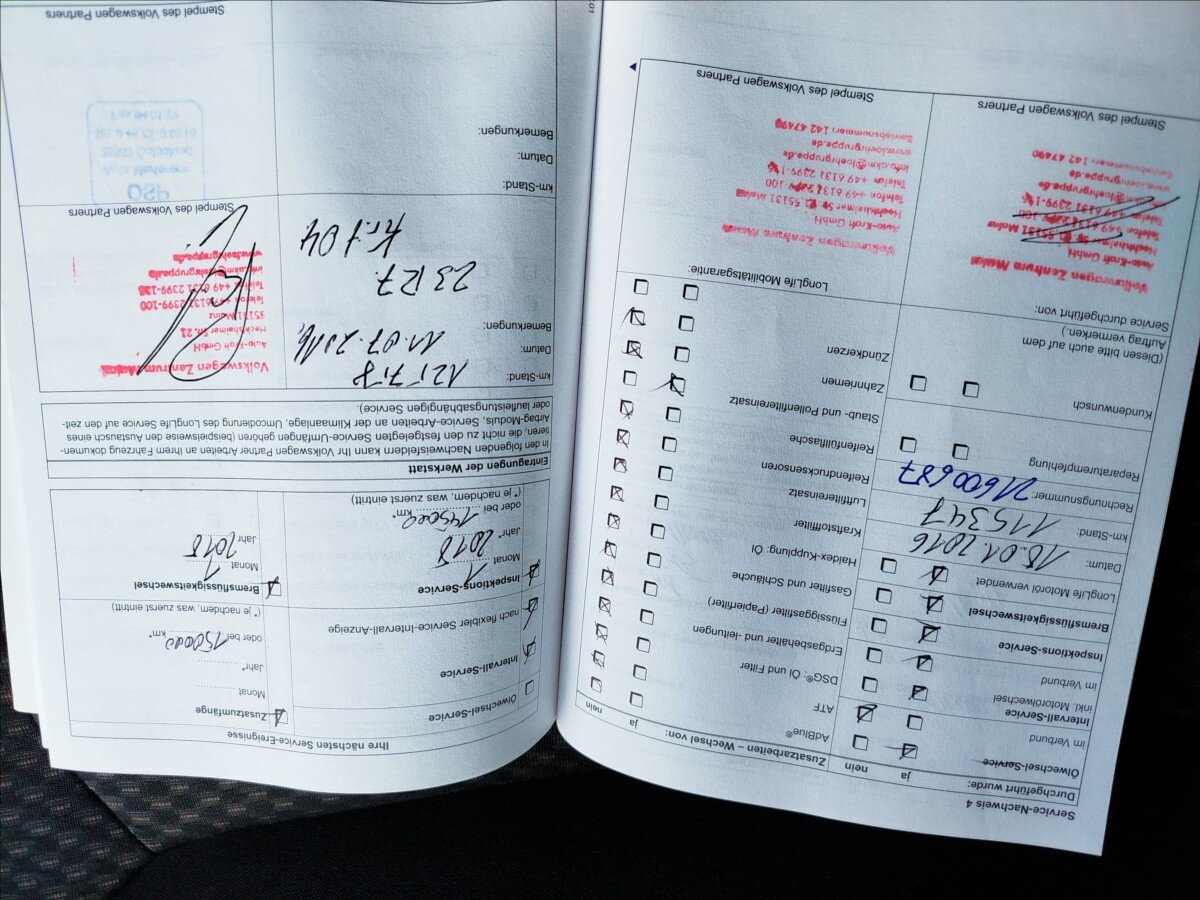 Service-Nachweis 4
Durchgeführt wurde:
ja
nein
Ölwechsel-Service
im Verbund
Intervall-Service
inkl. Motorölwechsel
im Verbund
Inspektions-Service
Bremsflüssigkeitswechsel
LongLife Motoröl verwendet
Datum:
18.01.2016
km-Stand:
115347
Rechnungsnummer:
21600687
Reparaturempfehlung
Kundenwunsch
(Diesen bitte auch auf dem
Auftrag vermerken.)
Service durchgeführt von:
Volkswagen Zentrum Mainz
Auto-Kraft GmbH
Telefon
www.loehrgruppe.de
Betriebsnummer: 142 47490
Stempel des Volkswagen Partners
Zusatzarbeiten – Wechsel von:
ja
nein
AdBlue®
ATF
DSG®: Öl und Filter
Erdgasbehälter und -leitungen
Flüssiggasfilter (Papierfilter)
Gasfilter und Schläuche
Haldex-Kupplung: Öl
Kraftstofffilter
Luftfiltereinsatz
Reifendrucksensoren
Reifenfüllflasche
Staub- und Pollenfiltereinsatz
Zahnriemen
Zündkerzen
LongLife Mobilitätsgarantie:
Volkswagen Zentrum Mainz
Auto-Kraft GmbH
55131 Mainz
Telefon +49 6131
www.loehrgruppe.de
Betriebsnummer: 142 47490
Stempel des Volkswagen Partners
Ihre nächsten Service-Ereignisse
Ölwechsel-Service
Intervall-Service
nach flexibler Service-Intervall-Anzeige
Inspektions-Service
Monat 1
Jahr* 2018
oder bei 145000 km*
(*je nachdem, was zuerst eintritt)
Zusatzumfänge
Monat
Jahr*
oder bei 150000 km*
(*je nachdem, was zuerst eintritt)
Bremsflüssigkeitswechsel
Monat 1
Jahr 2018
Eintragungen der Werkstatt
In den folgenden Nachweisfeldern kann Ihr Volkswagen Partner Arbeiten an Ihrem Fahrzeug dokumen-
tieren, die nicht zu den festgelegten Service-Umfängen gehören (beispielsweise den Austausch eines
Airbag-Moduls, Service-Arbeiten an der Klimaanlage, Umcodierung des LongLife Service auf den zeit-
oder laufleistungsabhängigen Service).
km-Stand:
Datum: 11.07.2016
Bemerkungen:
23R7
Volkswagen Zentrum Mainz
Auto-Kraft GmbH
55131 Mainz
Telefon +49 6131 2399-100
www.loehrgruppe.de
Stempel des Volkswagen Partners
km-Stand:
Datum:
Bemerkungen:
Stempel des Volkswagen Partners